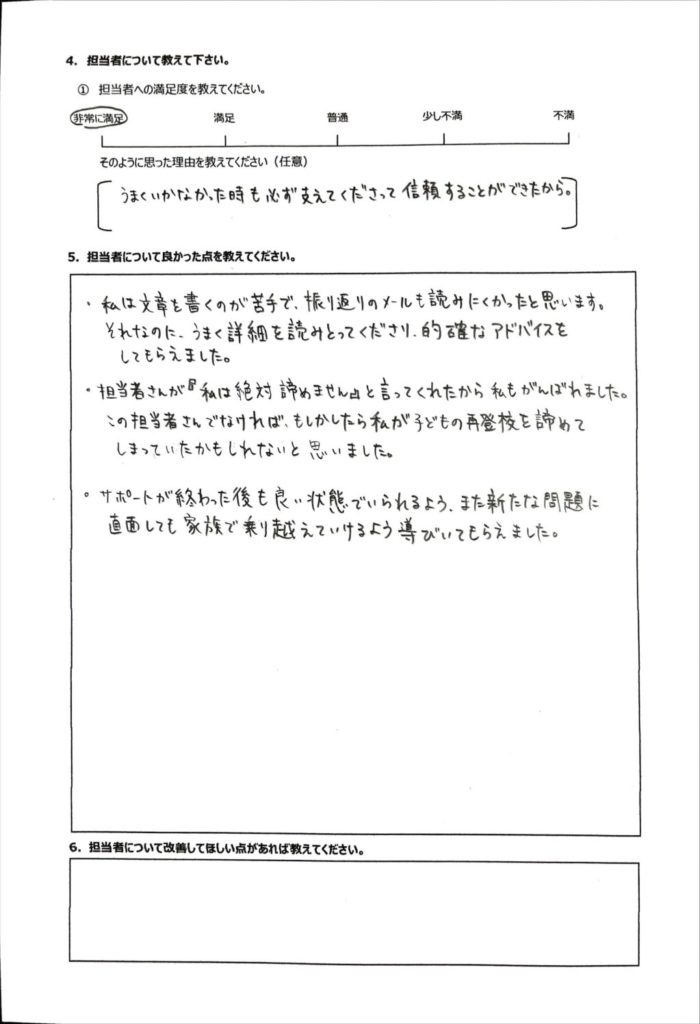 4. 担当者について教えて下さい。
① 担当者への満足度を教えてください。
非常に満足 満足 普通 少し不満 不満
そのように思った理由を教えてください（任意）
うまくいかなかった時も必ず支えてくださって信頼することができたから。
5. 担当者について良かった点を教えてください。
・私は文章を書くのが苦手で、振り返りのメールも読みにくかったと思います。
それなのに、うまく詳細を読みとってくださり、的確なアドバイスを
してもらえました。
・担当者さんが『私は絶対諦めません』と言ってくれたから私もがんばれました。
この担当者さんでなければ、もしかしたら私が子どもの再登校を諦めて
しまっていたかもしれないと思いました。
・サポートが終わった後も良い状態でいられるよう、また新たな問題に
直面しても家族で乗り越えていけるよう導びいてもらえました。
6. 担当者について改善してほしい点があれば教えてください。